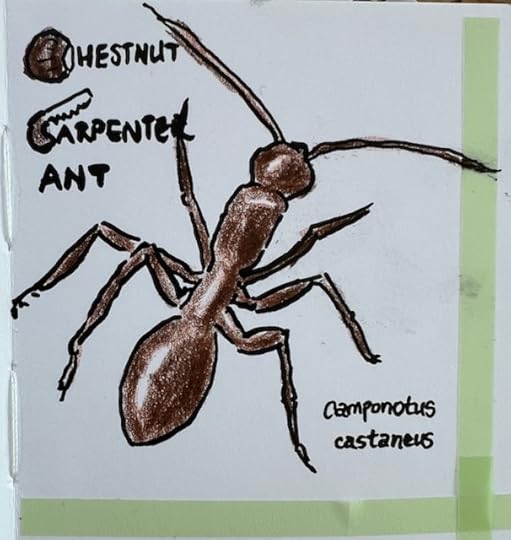 CHESTNUT
CARPENTER
ANT
Camponotus
castaneus